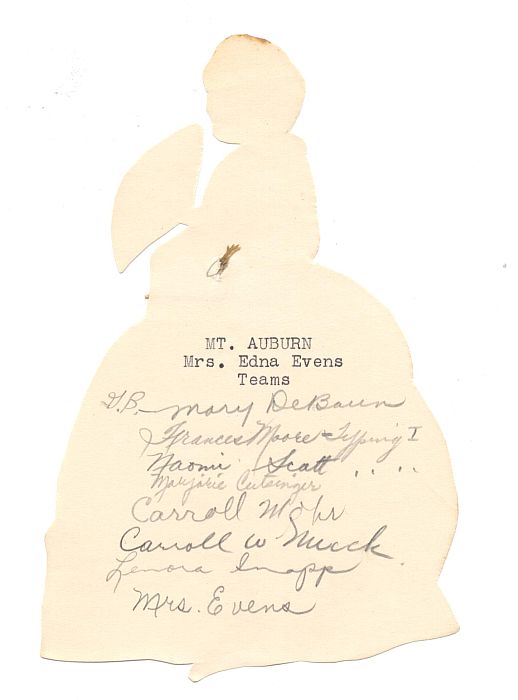 MT. AUBURN
Mrs. Edna Evens
Teams
G.B. - Mary DeBaun
Frances Moore - Typing I
Naomi Scott " "
Marjorie Cutsinger
Carroll Mohr
Carroll W
Lenora Knapp
Mrs. Evens